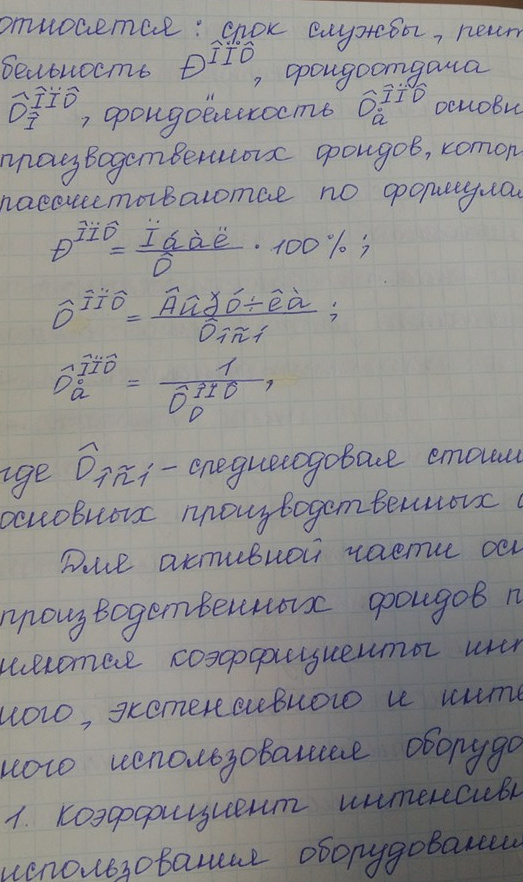 относятся: срок службы, рент
бельность Ð^ÎÏÔ, фондоотдача
Ô_Î^ÎÏÔ, фондоёмкость Ô_å^ÎÏÔ основн
производственных фондов, котор
рассчитываются по формулам
Ð^ÎÏÔ = Ïáàë / Ô · 100%;
Ô^ÎÏÔ = Âûðó÷êà / Ôîñí;
Ô_å^ÎÏÔ = 1 / Ô_О^ÎÏÔ,
где Ôîñí – среднегодовая стоим
основных производственных
Для активной части осн
производственных фондов п
няются коэффициенты инт
ного, экстенсивного и инте
ного использования оборудо
1. Коэффициент интенсивн
использования оборудования